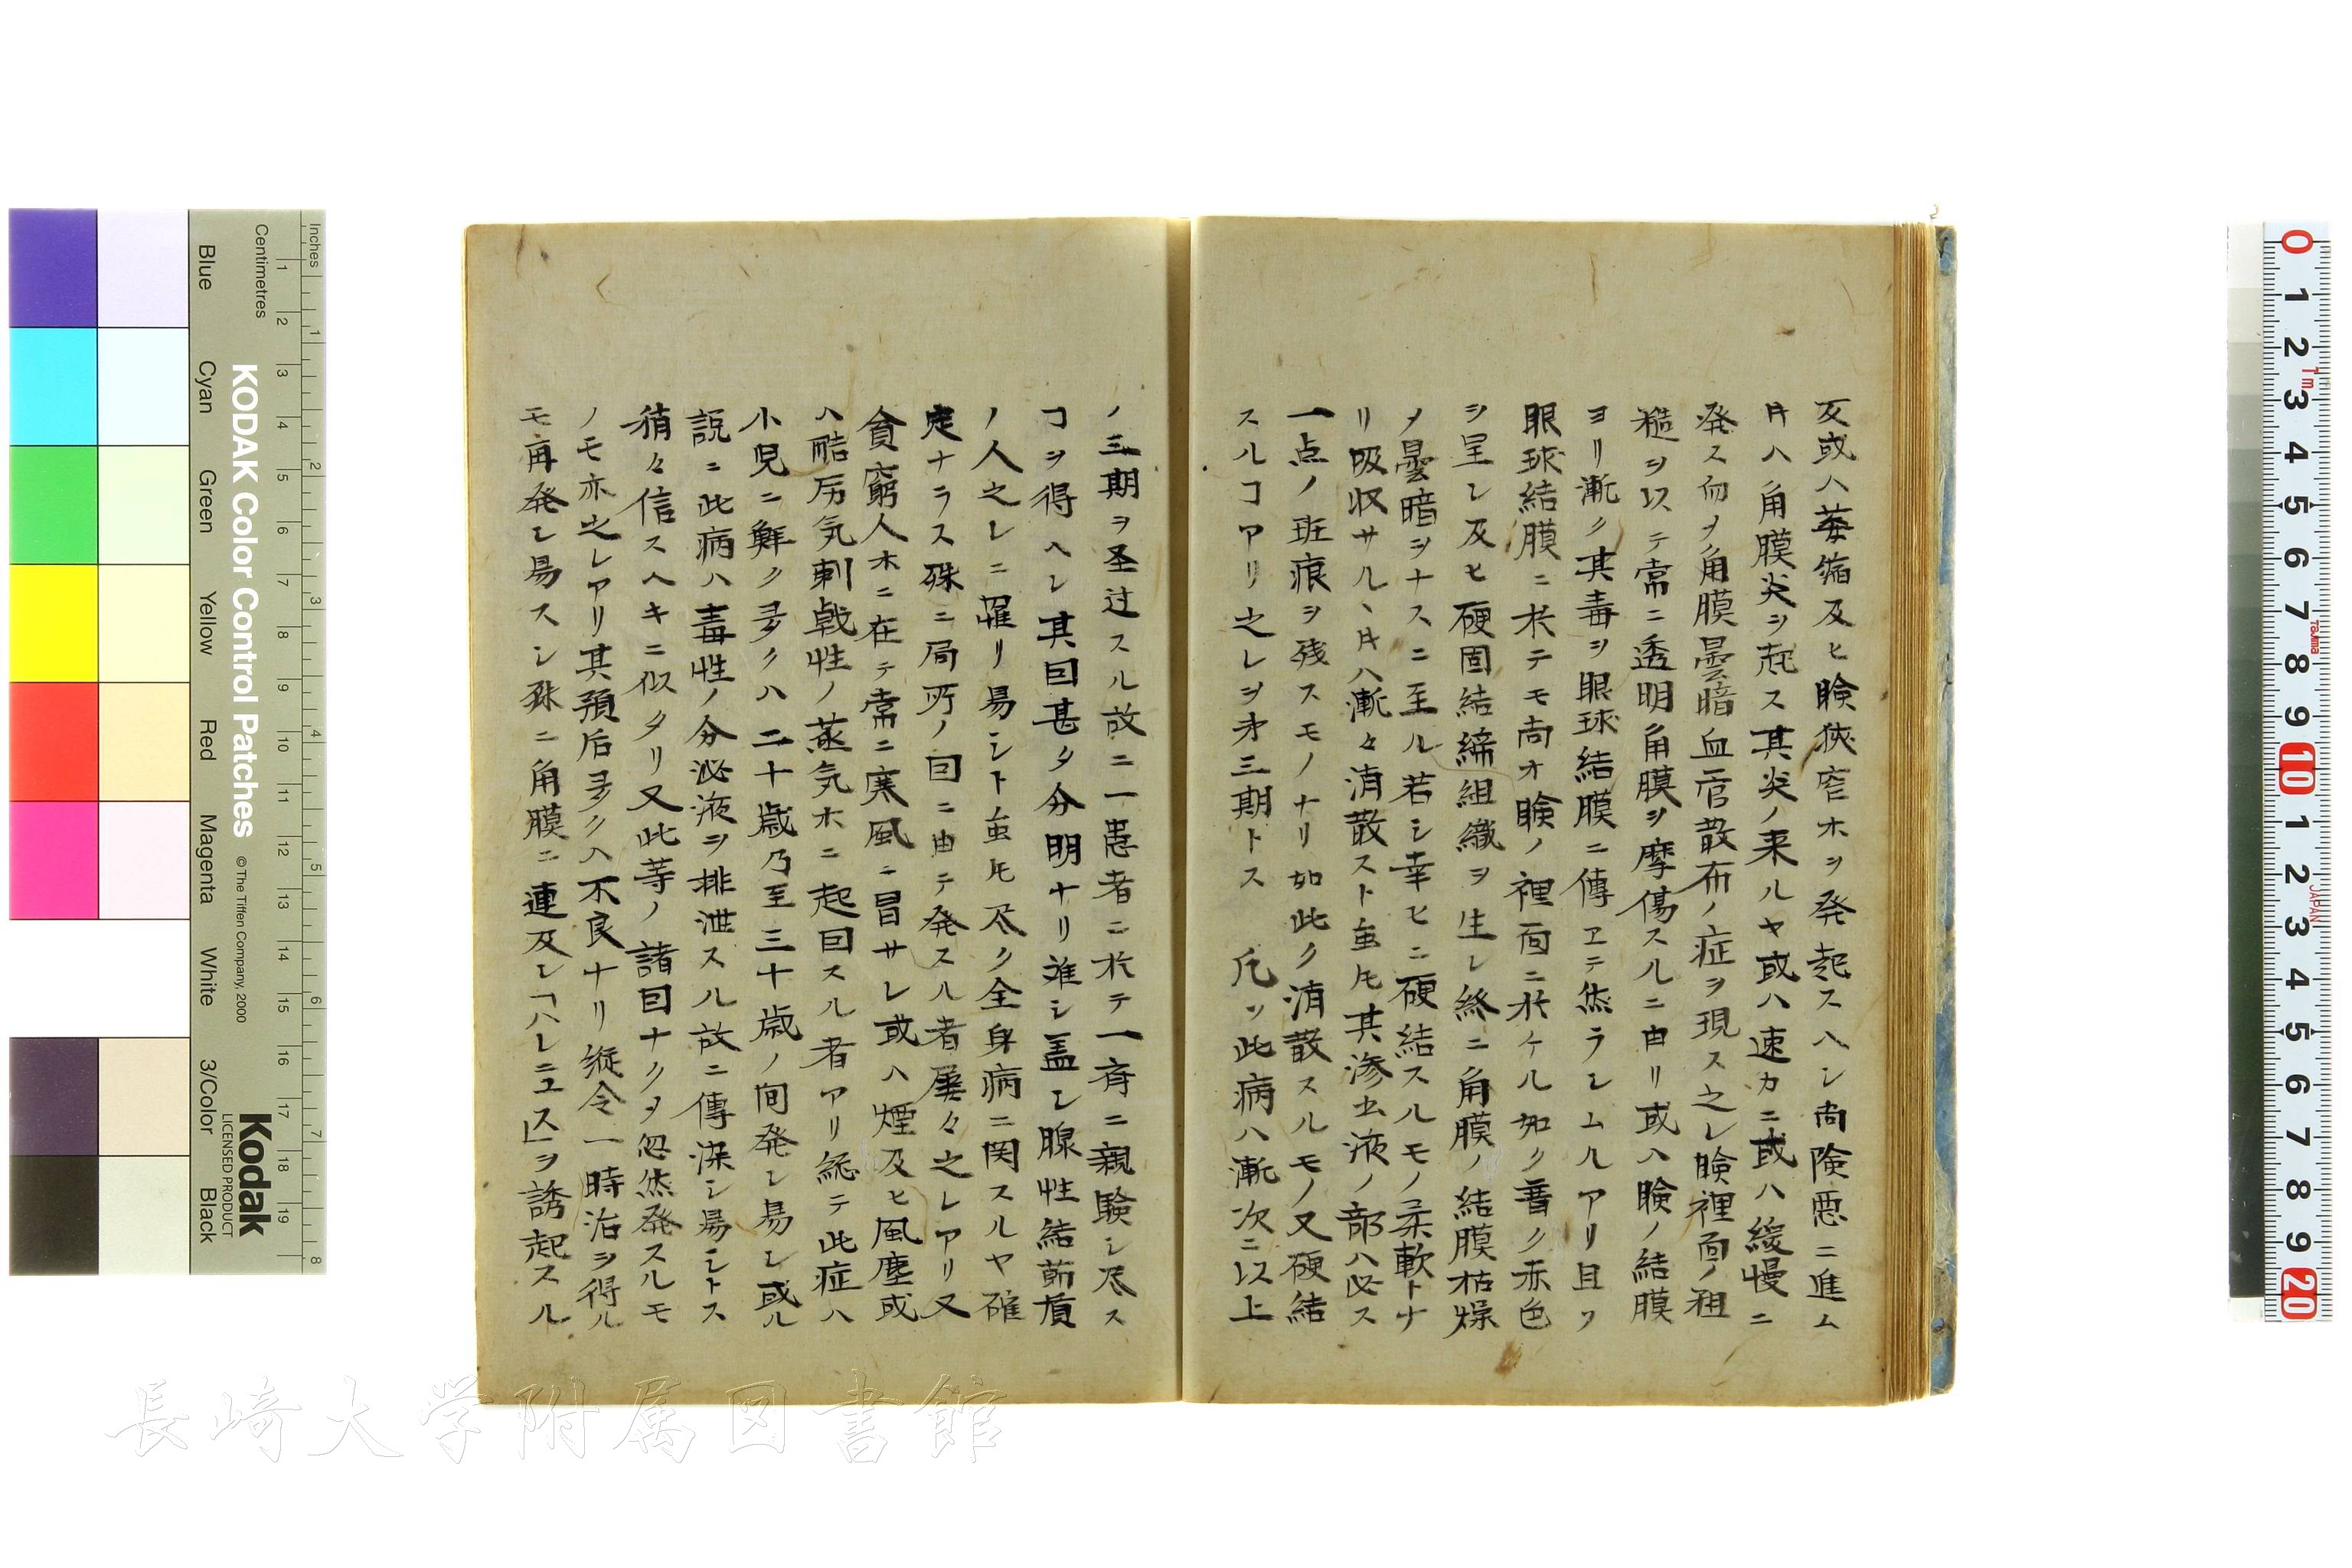 反或ハ萎縮及ヒ瞼狹窄ホヲ発起スヘシ尚険悪ニ進ム
片ハ角膜炎ヲ起ス其炎ノ来ルヤ或ハ速カニ或ハ緩慢ニ
発ス而ヲ角膜曇暗血管散布ノ症ヲ現ス之レ瞼裡面ノ粗
糙ヲ以テ常ニ透明角膜ヲ摩傷スルニ由リ或ハ瞼ノ結膜
ヨリ漸ク其毒ヲ眼球結膜ニ傳ヱテ然ラシムルアリ且ツ
眼球結膜ニ於テモ尚オ瞼ノ裡面ニ於ケル如ク普ク赤色
ヲ呈シ及ヒ硬固結締組織ヲ生シ終ニ角膜ノ結膜枯燥
メ曇暗ヲナスニ至ル若シ幸ヒニ硬結スルモノ柔軟トナ
リ吸収サル丶片ハ漸々消散スト虽𪜈其滲出液ノ部ハ必ス
一点ノ斑痕ヲ残スモノナリ如此ク消散スルモノ又硬結
スルヿアリ之レヲ㐧三期トス 凡ソ此病ハ漸次ニ以上
ノ三期ヲ圣过スル故ニ一患者ニ於テ一斉ニ親験シ尽ス
ヿヲ得ヘシ其囙甚タ分明ナリ难シ盖シ腺性結莭質
ノ人之レニ罹リ易シト虽𪜈尽ク全身病ニ関スルヤ確
定ナラス殊ニ局所ノ囙ニ由テ発スル者屡々之レアリ又
貧窮人ホニ在テ常ニ寒風ニ冒サレ或ハ煙及ヒ風塵或
ハ酷厉気刺戟性ノ蒸気ホニ起囙スル者アリ総テ此症ハ
小児ニ鮮ク多クハ二十歳乃至三十歳ノ间発シ易シ或ル
説ニ此病ハ毒性ノ分泌液ヲ排泄スル故ニ傳染シ易シトス
稍々信スヘキニ似タリ又此等ノ諸囙ナクヲ忽然発スルモ
ノモ亦之レアリ其預后多クハ不良ナリ縦令一時治ヲ得ル
モ再発シ易スシ殊ニ角膜ニ連及シ「ハレニユス」ヲ誘起スル
KODAK Color Control Patches
© The Tiffen Company, 2000
Kodak
LICENSED PRODUCT
Inches 1 2 3 4 5 6 7 8
Centimetres 1 2 3 4 5 6 7 8 9 10 11 12 13 14 15 16 17 18 19
Blue Cyan Green Yellow Red Magenta White 3/Color Black
0 1 2 3 4 5 6 7 8 9 10 1 2 3 4 5 6 7 8 9 20
1m
JAPAN
長崎大学附属図書館